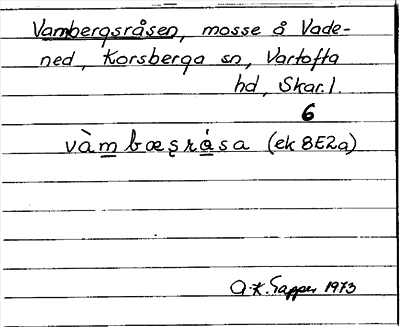 Vambergsråsen, mosse å Vade-
ned, Korsberga sn, Vartofta
hd, Skar. l.
6
vàmbœşråsa (ek 8E2a)
A-K. Tapper 1973